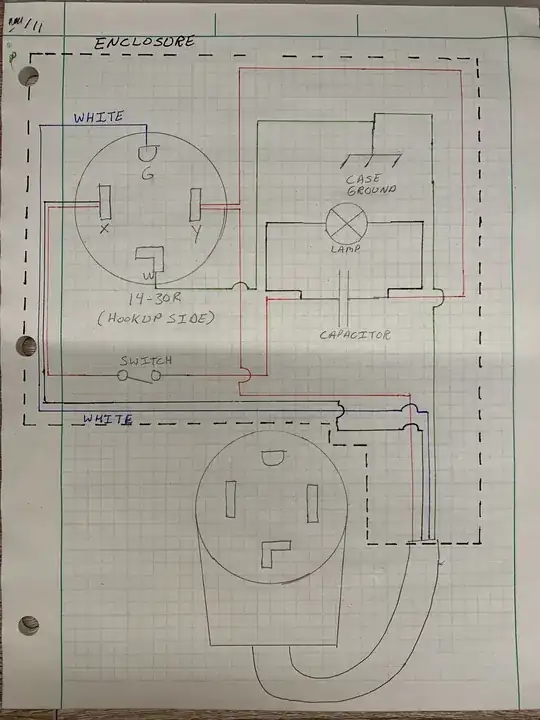 ENCLOSURE
WHITE
G
CASE
GROUND
X
Y
LAMP
W
14-30R
(HOOKUP SIDE)
CAPACITOR
SWITCH
WHITE